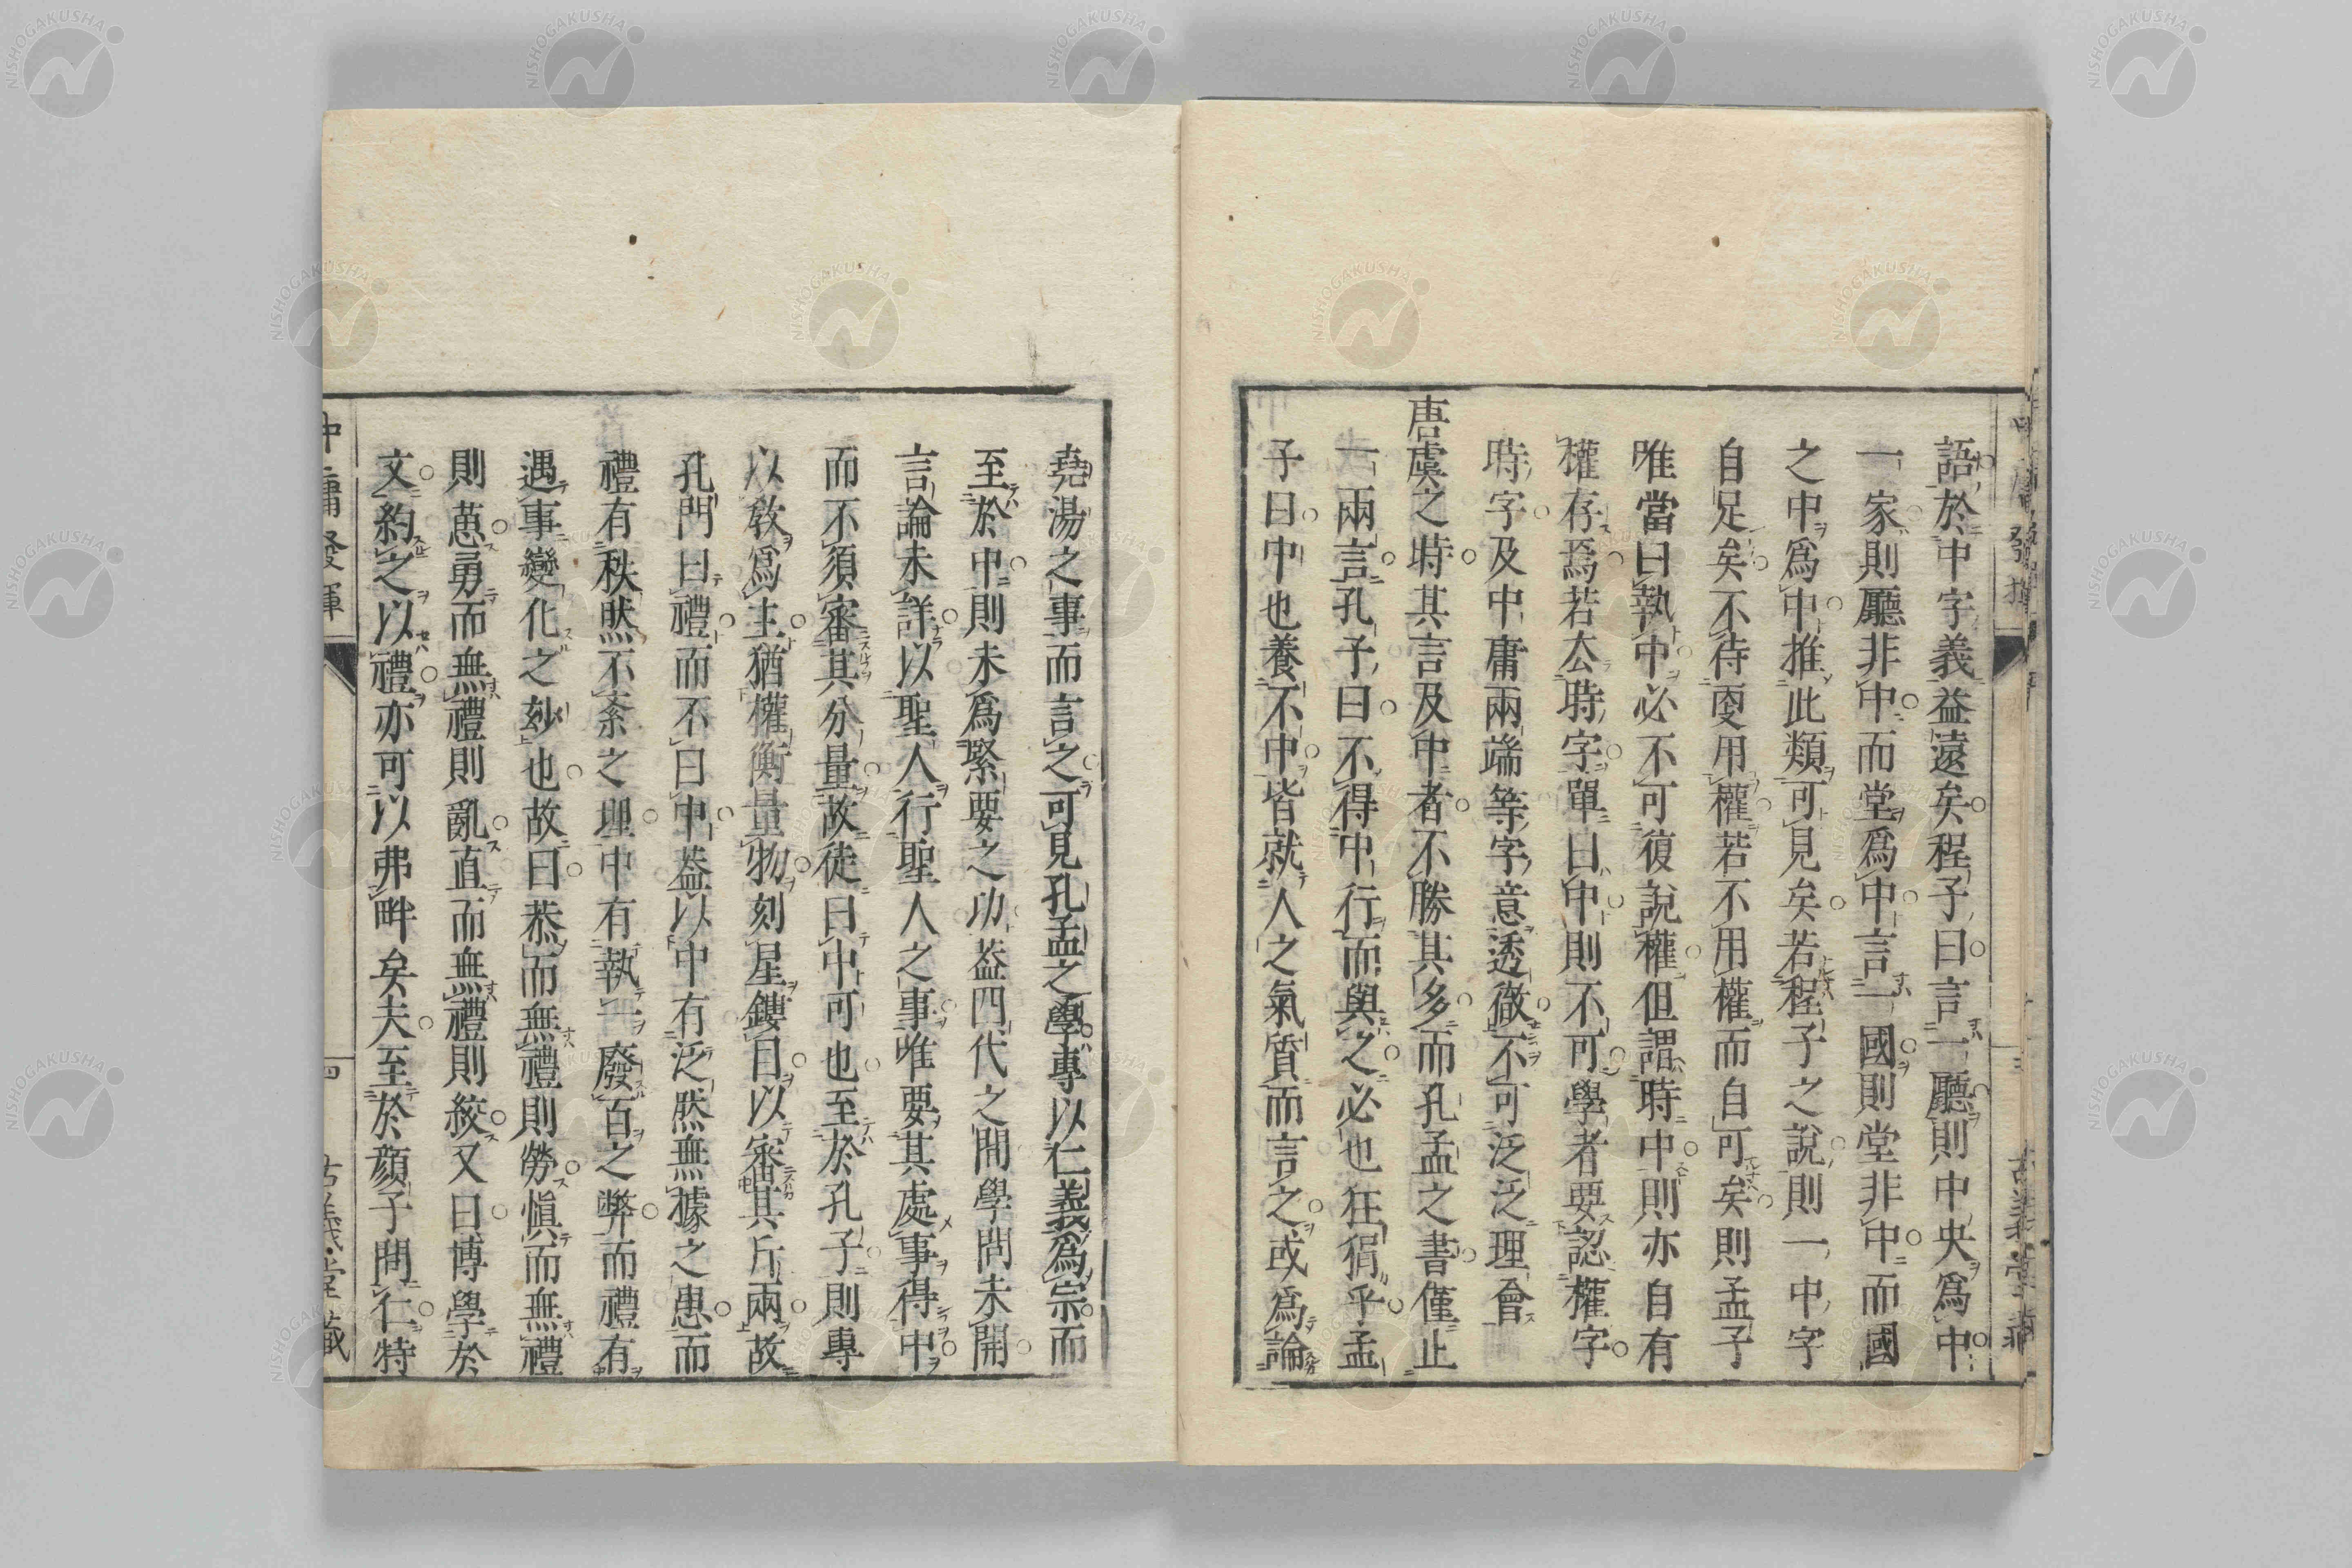 語於中字義益遠矣程子曰言一廳則中央爲中
一家則廳非中而堂爲中言一國則堂非中而國
之中爲中推此類可見矣若程子之說則一中字
自足矣不待更用權若不用權而自可矣則孟子
唯當曰執中必不可復說權但謂時中則亦自有
權存焉若厺時字單曰中則不可學者要認權字
時字及中庸兩端等字意透徹不可泛泛理會
唐虞之時其言及中者不勝其多而孔孟之書僅止
一兩言孔子曰不得中行而與之必也狂狷乎孟
子曰中也養不中皆就人之氣質而言之或爲論
堯湯之事而言之可見孔孟之學專以仁義爲宗而
至於中則未爲緊要之功益四代之間學問未開
言論未詳以聖人行聖人之事唯要其處事得中
而不須審其分量故徒曰中可也至於孔子則專
以敎爲主猶權衡量物刻星鏤目以審其斤兩故
孔門曰禮而不曰中益以中有泛然無據之患而
禮有秩然不紊之理中有執一廢百之弊而禮有
遇事變化之玅也故曰恭而無禮則勞愼而無禮
則葸勇而無禮則亂直而無禮則絞又曰博學於
文約之以禮亦可以弗畔矣夫至於顔子問仁特
中庸發揮
四
古義堂藏